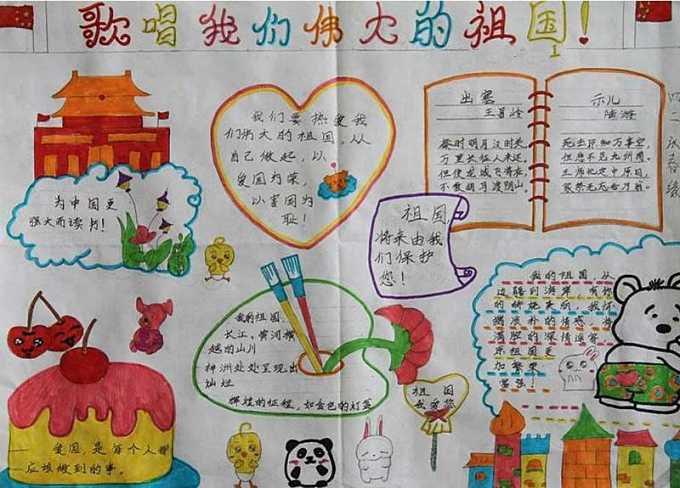 歌唱我们伟大的祖国!
为中国更
强大而读书!
我们要热爱我
们伟大的祖国,从
自己做起,以
爱国为荣,
以害国为
耻!
出塞
王昌龄
秦时明月汉时关
万里长征人未还,
但使龙城飞将在,
不教胡马渡阴山
示儿
陆游
死去原知万事空,
但悲不见九州同。
王师北定中原日,
家祭无忘告乃翁。
四二
祖国
将来由我
们保护
您!
我的祖国,
长江、黄河横
越的山川
神州处处呈现出
灿烂
辉煌的征程,如金色的灯盏
祖国
我爱您
我的祖国,从
边疆到海岸
我怀
满腔的深情
祖国更
加繁荣
富强!
爱国,是每个人都
应该做到的事。